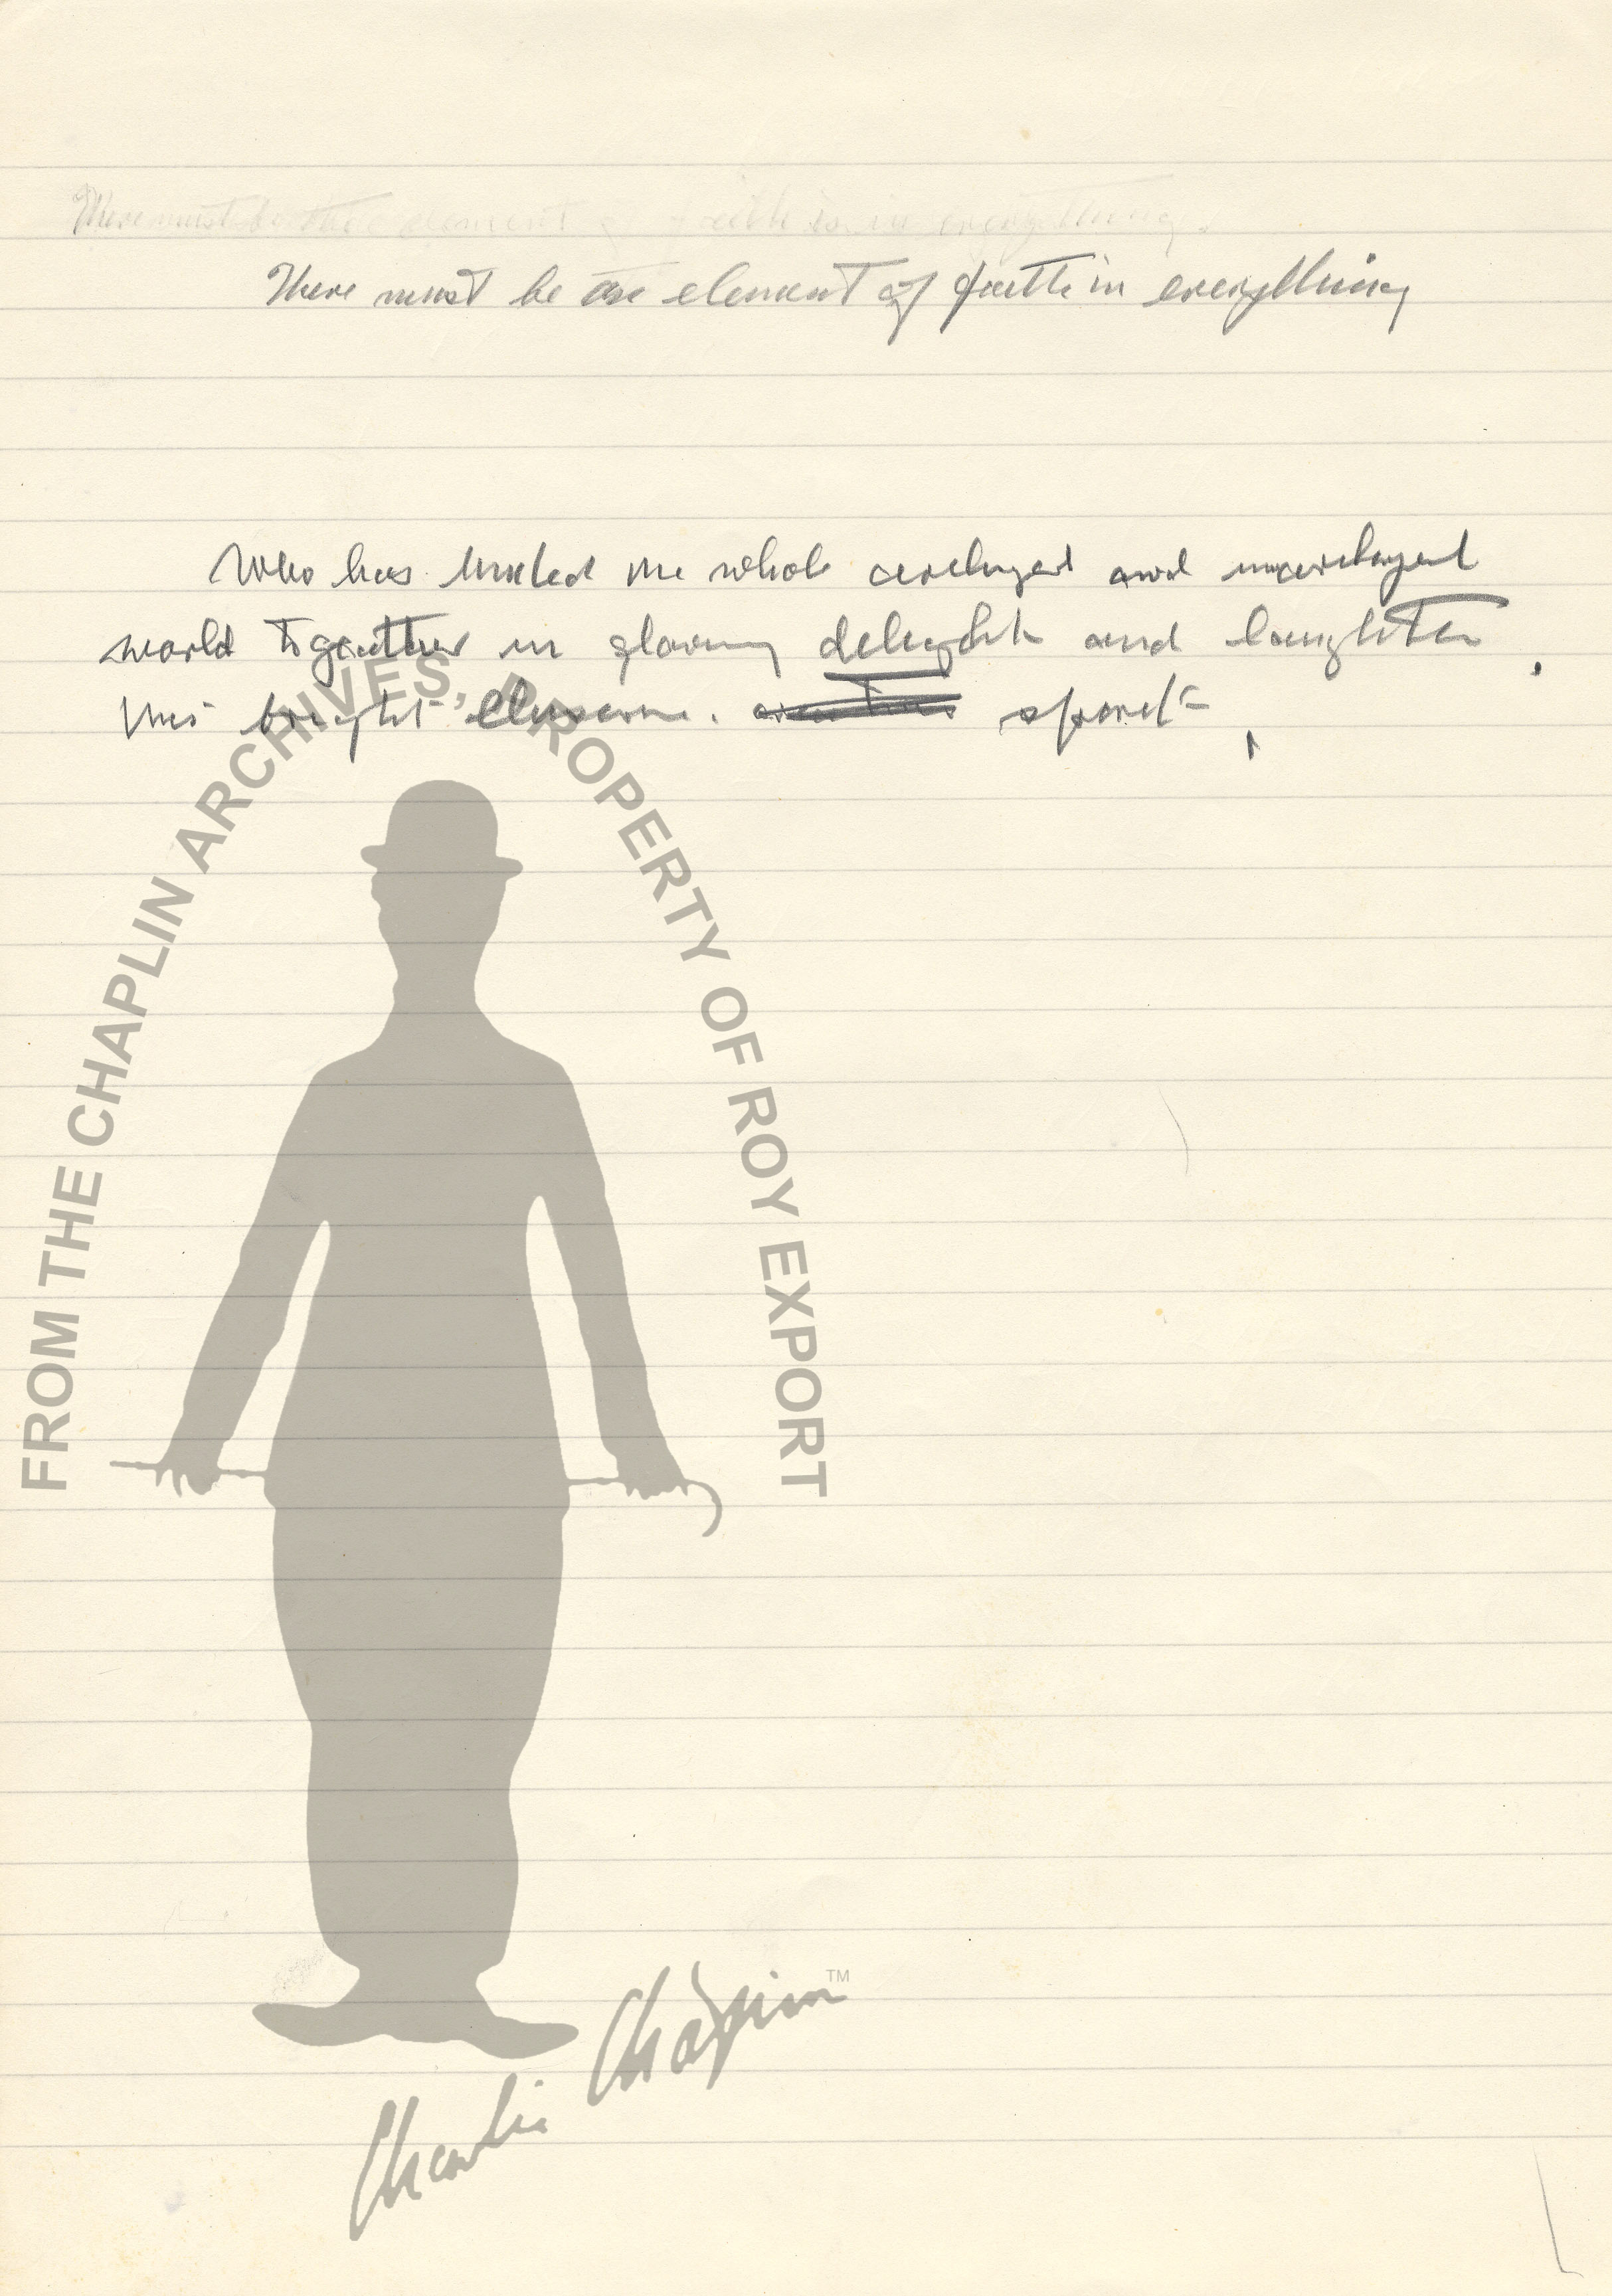 There must be the element of faith is in everything.
There must be an element of faith in everything
Who has linked the whole civilized and uncivilized
world together in glowing delight and laughter.
this bright elusive. spirit,
FROM THE CHAPLIN ARCHIVES, PROPERTY OF ROY EXPORT
Charlie Chaplin TM